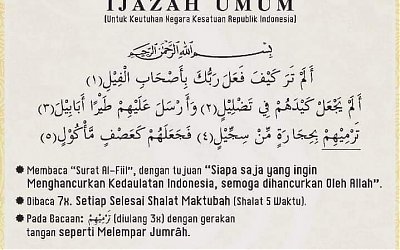 IJAZAH UMUM
(Untuk Keutuhan Negara Kesatuan Republik Indonesia)
بِسْمِ اللَّهِ الرَّحْمَنِ الرَّحِيمِ
أَلَمْ تَرَ كَيْفَ فَعَلَ رَبُّكَ بِأَصْحَابِ الْفِيْلِ (١)
أَلَمْ يَجْعَلْ كَيْدَهُمْ فِي تَضْلِيْلٍ (٢) وَأَرْسَلَ عَلَيْهِمْ طَيْرًا أَبَابِيْلَ (٣)
تَرْمِيْهِمْ بِحِجَارَةٍ مِّنْ سِجِّيْلٍ (٤) فَجَعَلَهُمْ كَعَصْفٍ مَّأْكُوْلٍ (٥)
Membaca "Surat Al-Fiil", dengan tujuan "Siapa saja yang ingin
Menghancurkan Kedaulatan Indonesia, semoga dihancurkan Oleh Allah".
Dibaca 7x. Setiap Selesai Shalat Maktubah (Shalat 5 Waktu).
Pada Bacaan: تَرْمِيْهِمْ (diulang 3x) dengan gerakan
tangan seperti Melempar Jumrâh.